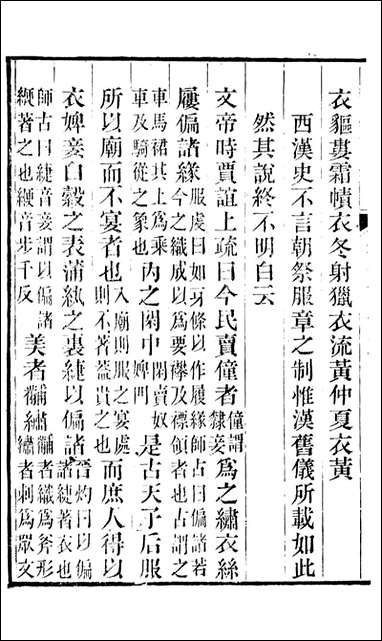 衣貙婁霜幘衣冬射獵衣流黃仲夏衣黃
西漢史不言朝祭服章之制惟漢舊儀所載如此
然其說終不明白云
文帝時賈誼上疏曰今民賣僮者僮謂隸妾爲之繡衣絲
履偏諸緣服虔曰如牙條以作履緣師古曰偏諸若今之織成以爲要襻及褾領者也古謂之
車馬裙其上爲乘車及騎從之象也內之閑中閑賣奴婢是古天子后服
所以廟而不宴者也入廟則服之宴處則不著蓋貴之也而庶人得以
衣婢妾白縠之表薄紈之裏緁以偏諸晉灼曰以偏諸緁著衣也
師古曰緁音妾謂以偏諸緶著之也緶音步千反美者黼繡黼者織爲斧形繡者刺爲眾文